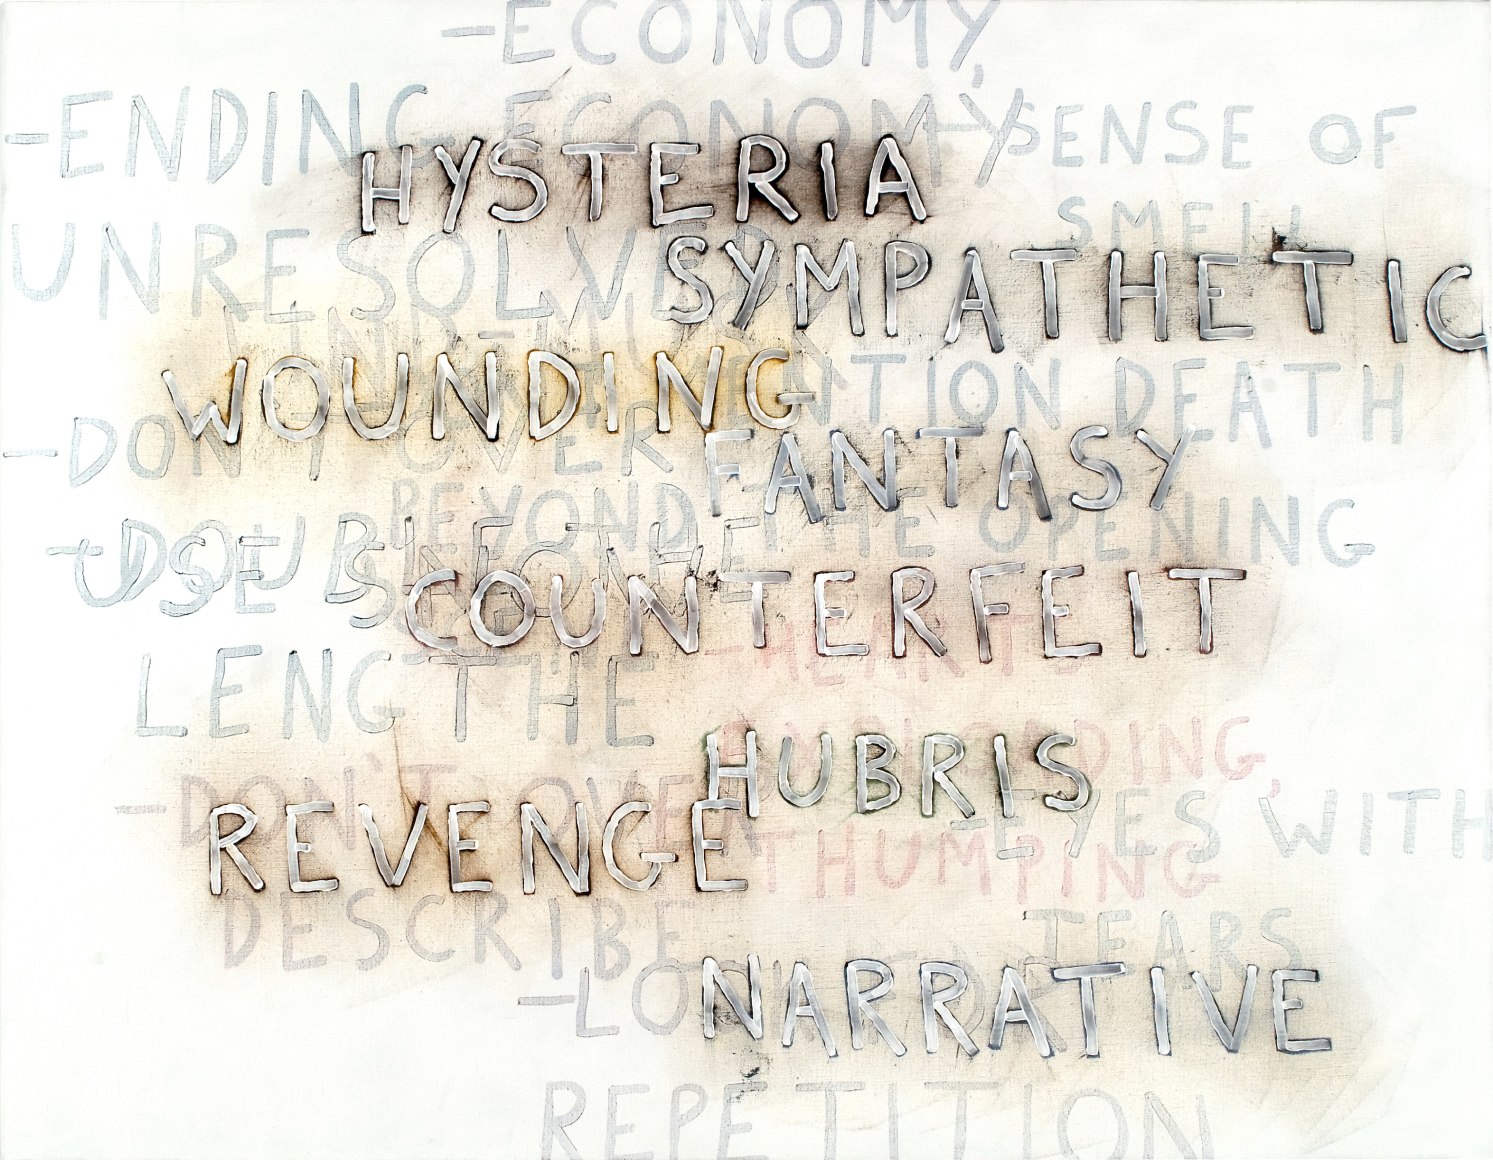 -ECONOMY,
-ENDING ECONOMY
-SENSE OF
HYSTERIA
SMELL
UNRESOLVED
SYMPATHETIC
WOUNDING
DEATH
-DON'T OVER
FANTASY
BEYOND THE OPENING
DOUBLE THE
-USE
COUNTERFEIT
-HEART
LENGTHE
HUBRIS
-DON'T OVER
-EYES WITH
REVENGE
THUMPING
DESCRIBE
TEARS
NARRATIVE
-LOOK FOR
REPETITION